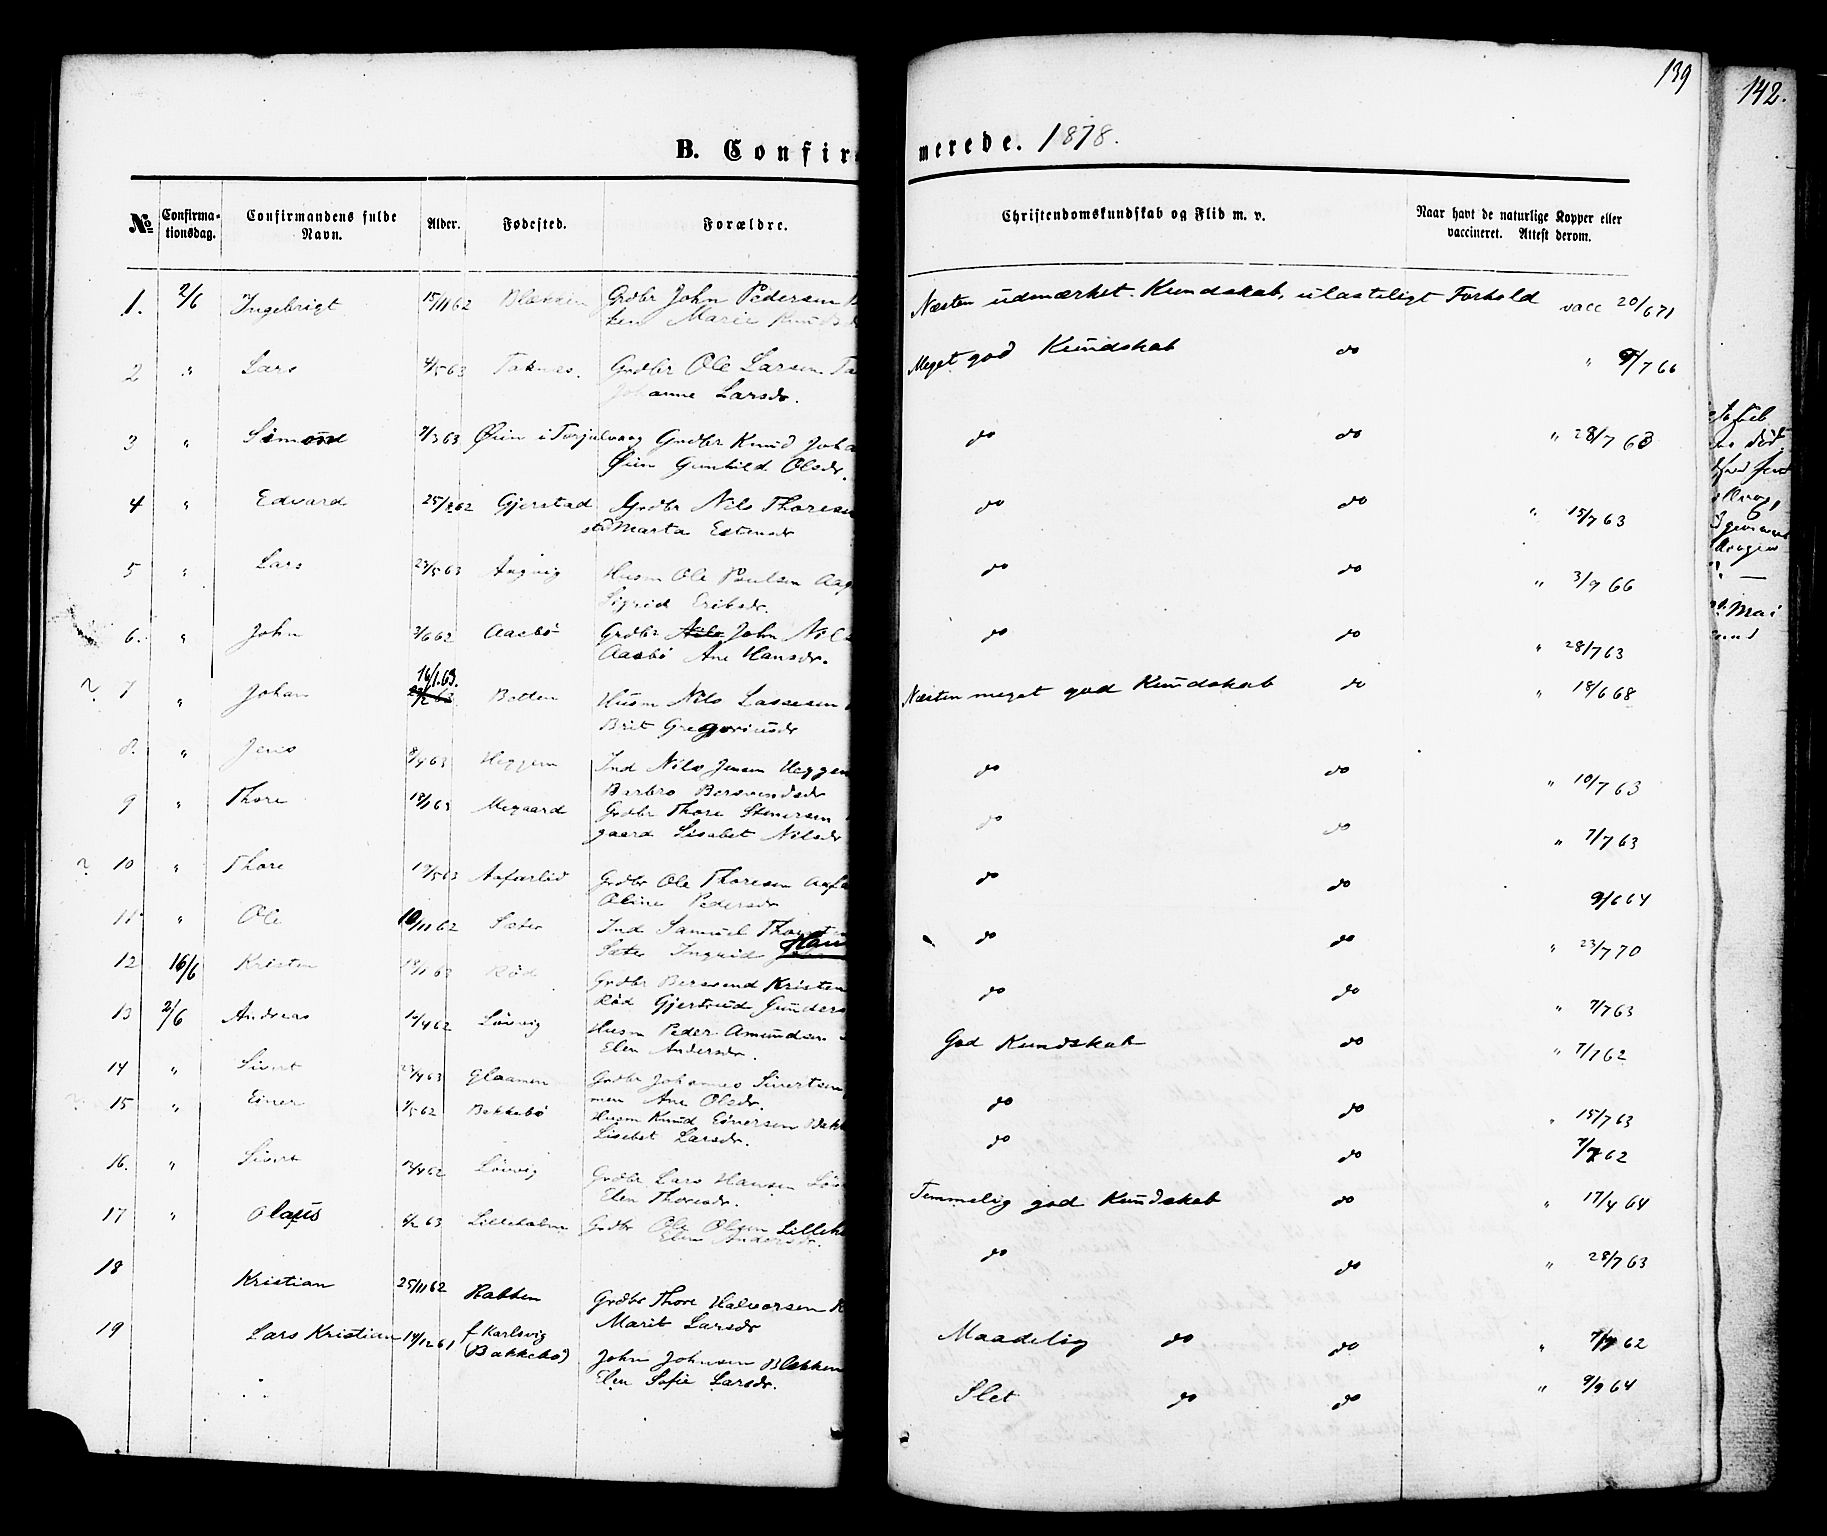 139
142.
B. Confir merede. 1878.
No Confirmationsdag. Confirmandens fulde Navn. Alder. Fødested. Forældre. Christendomskundskab og Flid m. v. Naar havt de naturlige Kopper eller vaccineret. Attest derom.
1. 2/6 Ingebrigt 15/11 62 Blekken Grdbr John Pedersen Næsten udmærket Kundskab, ulasteligt Forhold vacc 20/6 71
ken Marie Knudsd
2 " Lars 4/5 63 Taknes. Grdbr Ole Larsen Meget god Kundskab do " 9/7 66
Johanne Larsdr.
3 " Simond 7/3 63 Øien i Torjulvaag Grdbr Knud Joha do do " 28/7 63
Øien Gunhild Olsdr.
4 " Edvard Gjerstad Grdbr Nils Thoresen do do " 15/7 63
stad Marta Estensdr
5 " Lars 23/5 63 Angvig Husm Ole Poulsen do do " 3/9 66
Sigrid Eriksdr.
6. " John Aasbø Grdbr Nils John Nils do do " 28/7 63
Aasbø Ane Hansdr.
? 7 " Johan 16/1 63. Botten Husm Nils Lassesen Næsten meget god Kundskab do " 18/6 68
Brit Gregoriusdr
8. " Jens 8/4 63 Heggem Ind Nils Jensen Heggem do do " 10/7 63
Berbro Bersvendsdr
9 " Thore 18/1 63 Megaard Grdbr Thore Stenersen do do " 7/7 63
gaard Lisabet Nilsdr
? 10 " Thore 19/5 63 Aafarlid Grdbr Ole Thoresen do do 9/6 64
Oline Pedersdr
11 " Ole 10/11 62 Sæter Ind Samuel do do " 23/7 70
Sæter Ingrid Han
12 16/6 Kristen Rød Grdbr Bersvend Kristen do do " 7/7 63
Rød Gjertrud Gunders
13 2/6 Andreas Løvvig Husm Peder Amundsen God Kundskab do " 7/7 62
Elen Andersdr.
14 " Sivert 23/4 63 Glaamen Grdbr Johannes Sivertsen do do " 15/7 63
men Ane Olsdr.
15 " Einer Bakkebø Husm Knud Einersen Bakk do do 7/7 62
Lisebet Larsdr.
16. " Sivert Løvvig Grdbr Lars Hansen Løv Temmelig god Kundskab do " 17/4 64
Elen Thoresdr.
17 " Olaus Lilleholm Grdbr Ole Olsen Lilleh do do " 28/7 63
Elen Andersdr.
18 Kristian 25/11 62 Rabben Grdbr Thore Halvorsen Maadelig do do " 7/7 62
Marit Larsdr
19 Lars Kristian 14/12 61 f Karlsvig John Johnsen Blekken Slet do do " 9/9 64
(Bakkebø) Elen Sofie Larsdr.